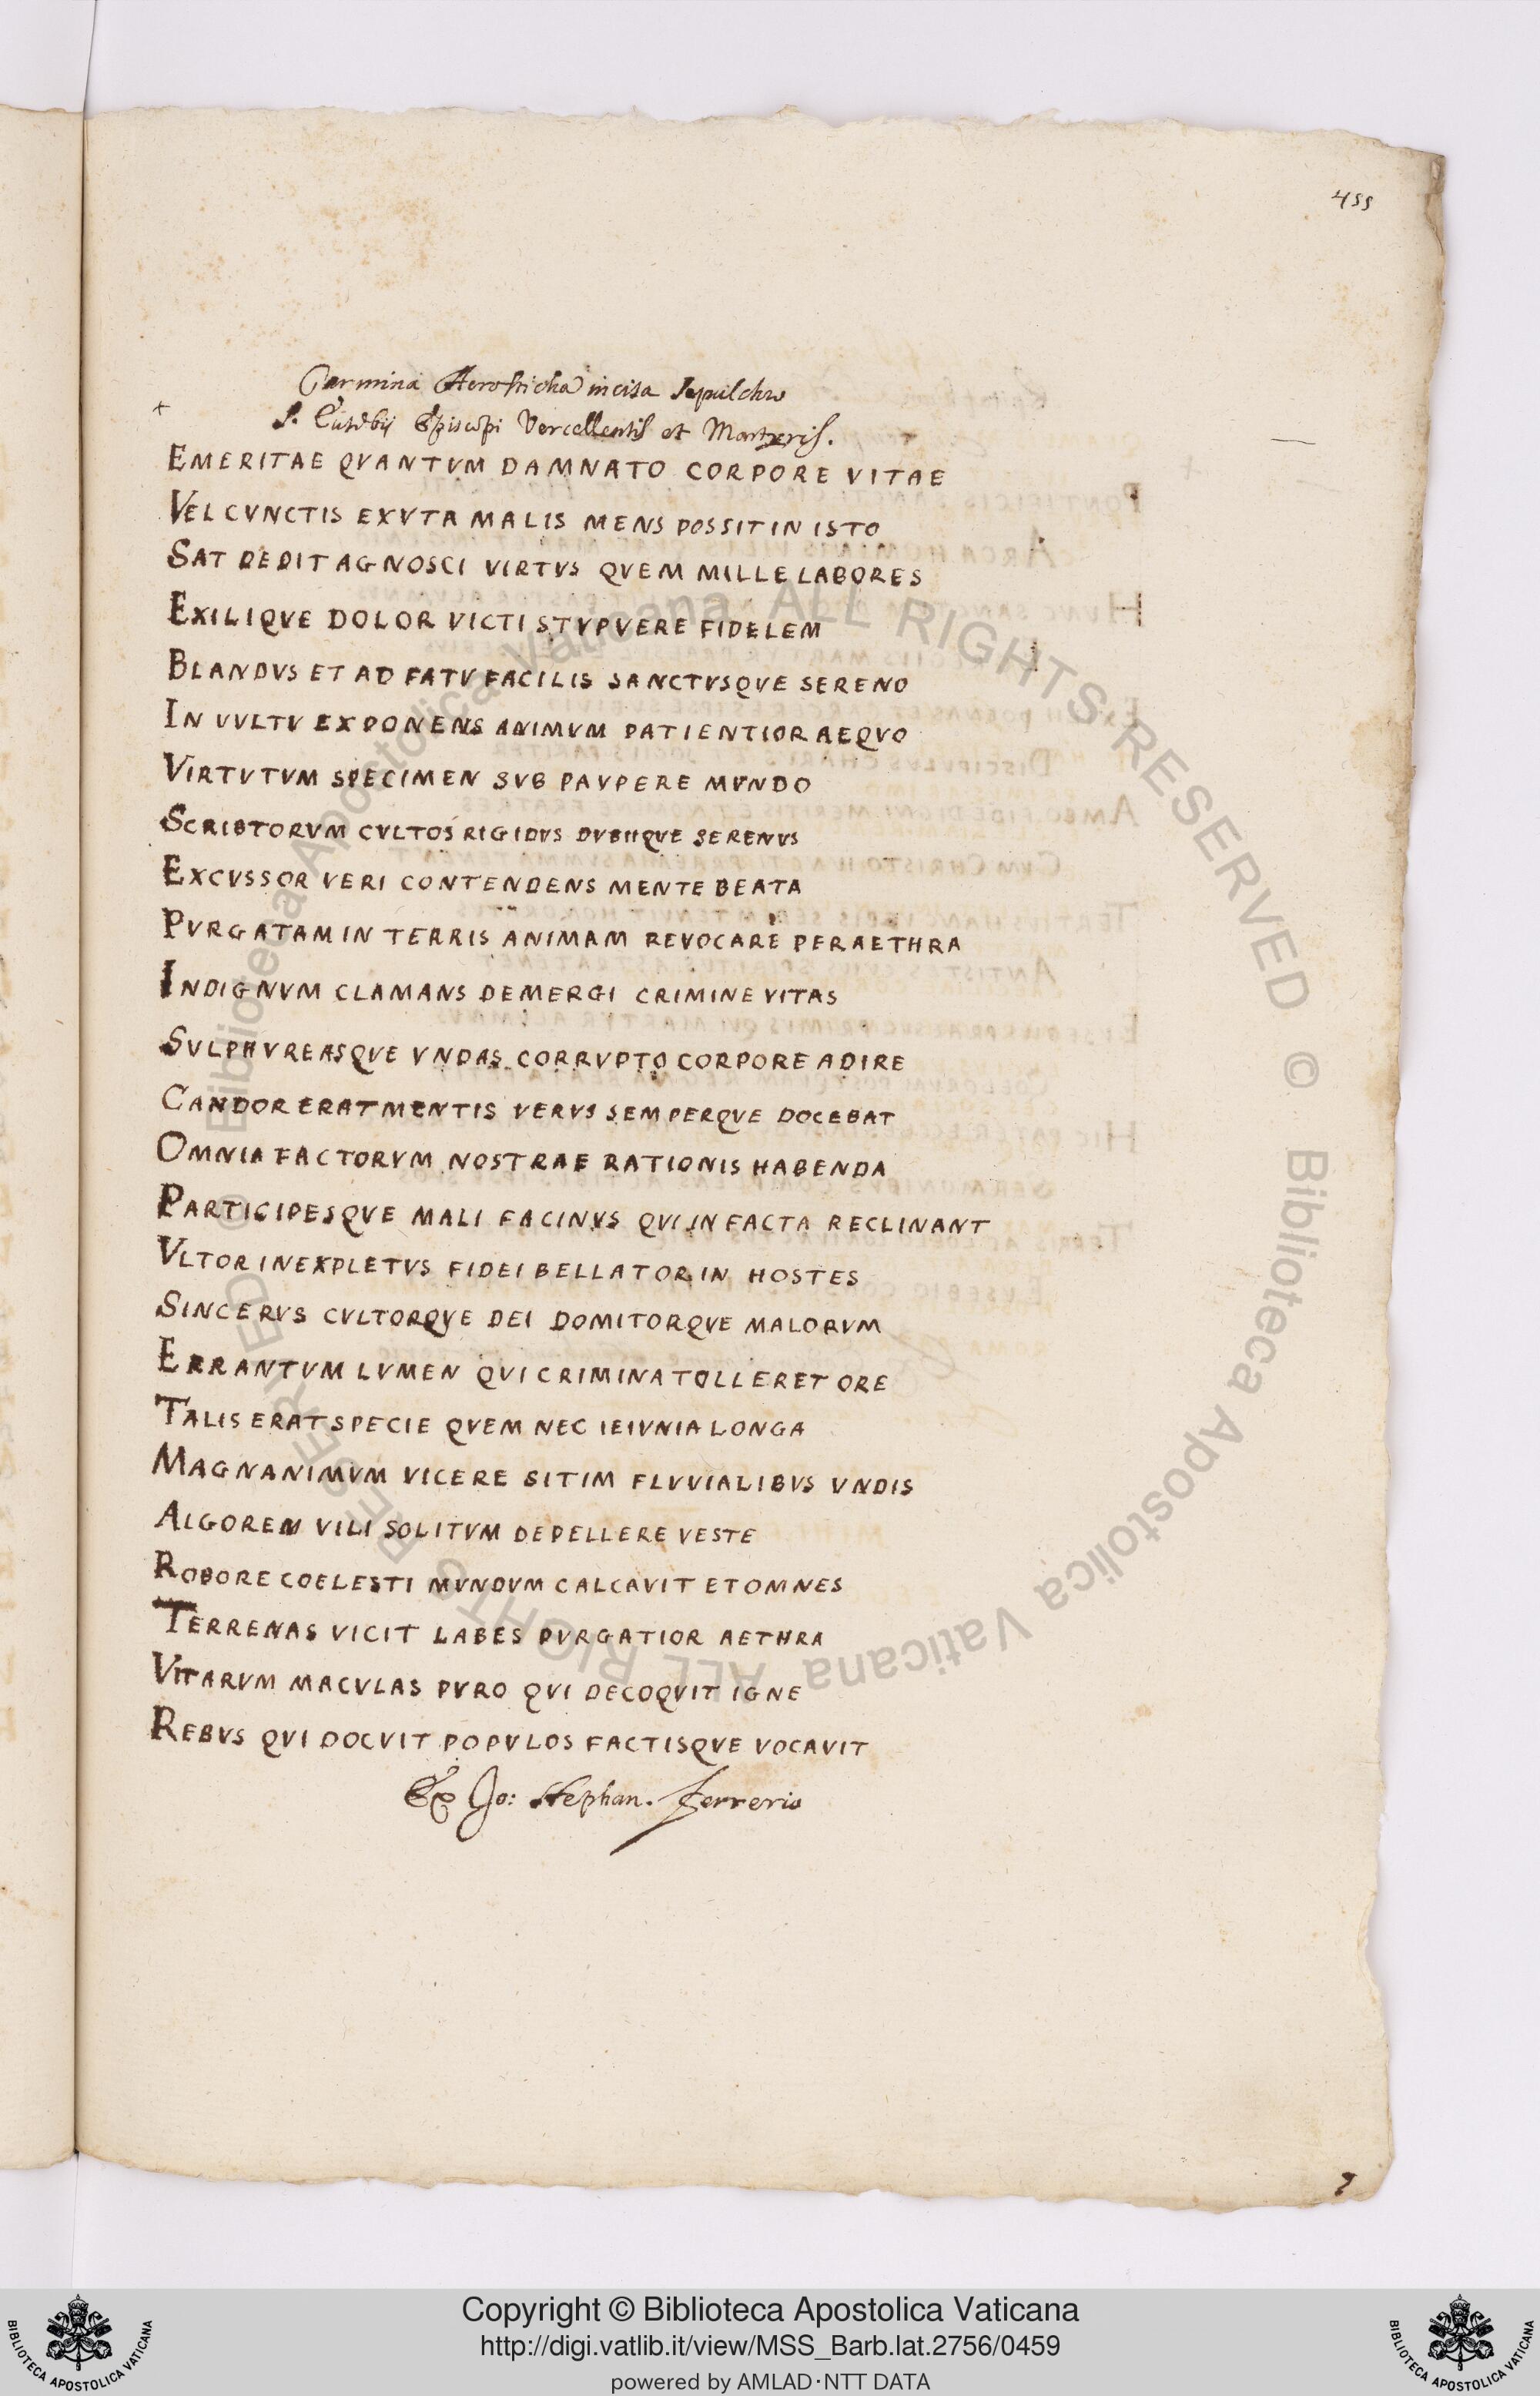 455
Carmina Acrosticha incisa Sepulchro
S. Eusebij Episcopi Vercellensis et Martyris.
EMERITAE QVANTVM DAMNATO CORPORE VITAE
VEL CVNCTIS EXVTA MALIS MENS POSSIT IN ISTO
SAT DEDIT AGNOSCI VIRTVS QVEM MILLE LABORES
EXILIQVE DOLOR VICTI STVPVERE FIDELEM
BLANDVS ET AD FATV FACILIS SANCTVSQVE SERENO
IN VVLTV EXPONENS ANIMVM PATIENTIOR AEQVO
VIRTVTVM SPECIMEN SVB PAVPERE MVNDO
SCRIBTORVM CVLTOS RIGIDVS DVBIIQVE SERENVS
EXCVSSOR VERI CONTENDENS MENTE BEATA
PVRGATAM IN TERRIS ANIMAM REVOCARE PER AETHRA
INDIGNVM CLAMANS DEMERGI CRIMINE VITAS
SVLPHVREASQVE VNDAS CORRVPTO CORPORE ADIRE
CANDOR ERAT MENTIS VERVS SEMPERQVE DOCEBAT
OMNIA FACTORVM NOSTRAE RATIONIS HABENDA
PARTICIPESQVE MALI FACINVS QVI IN FACTA RECLINANT
VLTOR INEXPLETVS FIDEI BELLATOR IN HOSTES
SINCERVS CVLTORQVE DEI DOMITORQVE MALORVM
ERRANTVM LVMEN QVI CRIMINA TOLLERET ORE
TALIS ERAT SPECIE QVEM NEC IEIVNIA LONGA
MAGNANIMVM VICERE SITIM FLVVIALIBVS VNDIS
ALGOREM VILI SOLITVM DEPELLERE VESTE
ROBORE COELESTI MVNDVM CALCAVIT ET OMNES
TERRENAS VICIT LABES PVRGATIOR AETHRA
VITARVM MACVLAS PVRO QVI DECOQVIT IGNE
REBVS QVI DOCVIT POPVLOS FACTISQVE VOCAVIT
Ex Jo: Stephan. Ferrerio
Copyright © Biblioteca Apostolica Vaticana
http://digi.vatlib.it/view/MSS_Barb.lat.2756/0459
powered by AMLAD·NTT DATA